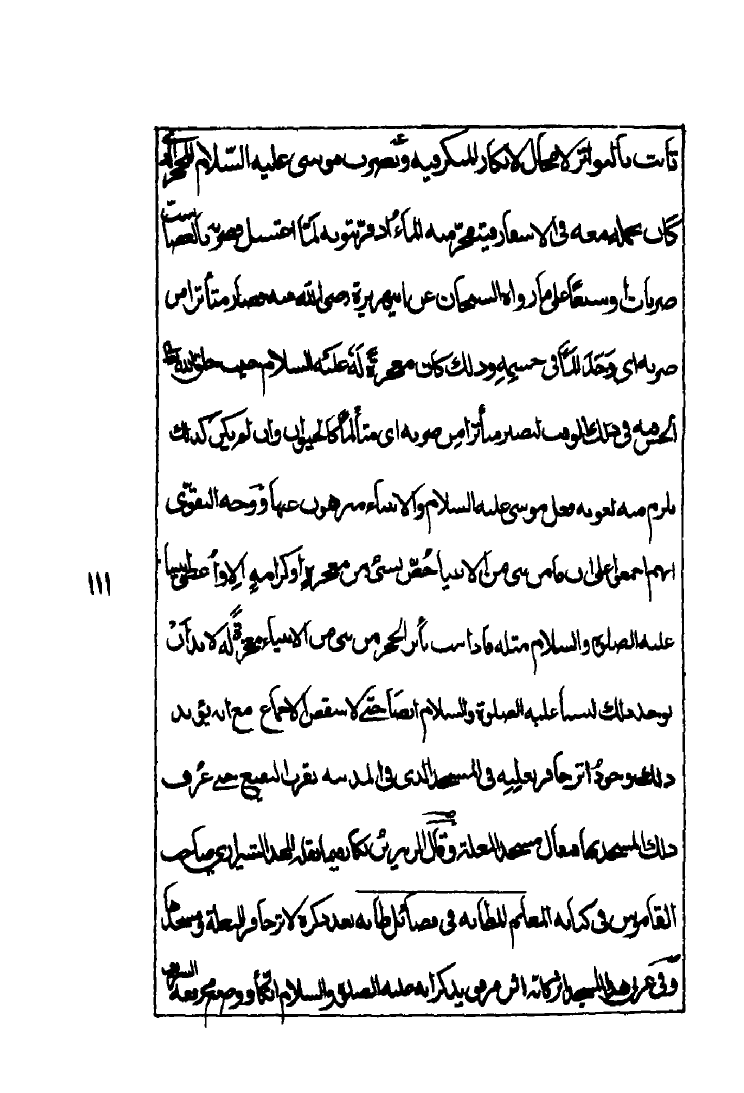 ثابت بالتواتر لا مجال لانكار المنكر فيه وبضرب موسى عليه السّلام الحجر الذي
كان يحمله معه في الاسفار فيتفجر منه الماء اذ فرّ بثوبه لمّا اغتسل فضربه بالعصا ست
ضربات او سبعا على ما رواه الشيخان عن ابي هريرة رضى الله عنه فصار متأثرا من
ضربه اى وَجَدَ الماً في جسمه وذلك كان معجزة لَهُ عليه السلام حيث خلق الله
الحس فيه في ذلك الوقت لتصير متأثرا من ضربه اى متألماً كالحيوان وان لم يكن كذلك
يلزم منه لغوية فعل موسى عليه السلام والانبياء مبرهون عنها وَوجه التقوّى
انهم اجمعوا على ان ما من نبى من الانبيا خُصّ بشئ من معجزة او كرامة الا وأعطى نبينا
عليه الصلوة والسلام مثله فاذا ثبت تأثر الحجر من نبى من الانبياء معجزةً له لا بد أنْ
يوجد ذلك لنبينا عليه الصلوة والسلام ايضا حتى لا ينتقض الاجماع مع انه يؤيد
ذلك وجودُ اثر حافر بغلته في المسجد الذى في المدينة بقرب البقيع حتى عُرف
ذلك المسجد بها فيقال مسجد البغلة وقال الزبير بن بكار فيما نقله المجد الشيرازي صاحب
القاموس في كتابه المغانم المطابة في فضائل طابة بعد ذكره لاثر حافر البغلة في مسجد
وفى غربى هذا المسجد اثر كانه اثر مرفق يذكر انه عليه الصلوة والسلام اتكأ ووضع مرفقه الشريف
١١١